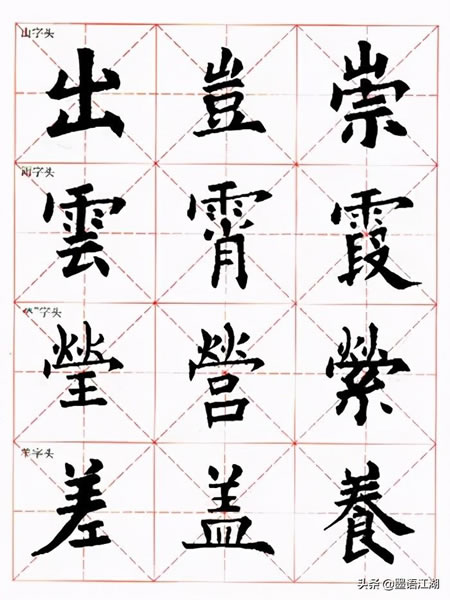 山字头
出 豈 崇
雨字头
雲 霄 霞
"字头
瑩 營 縈
羊字头
差 盖 養
头条 @墨语江湖